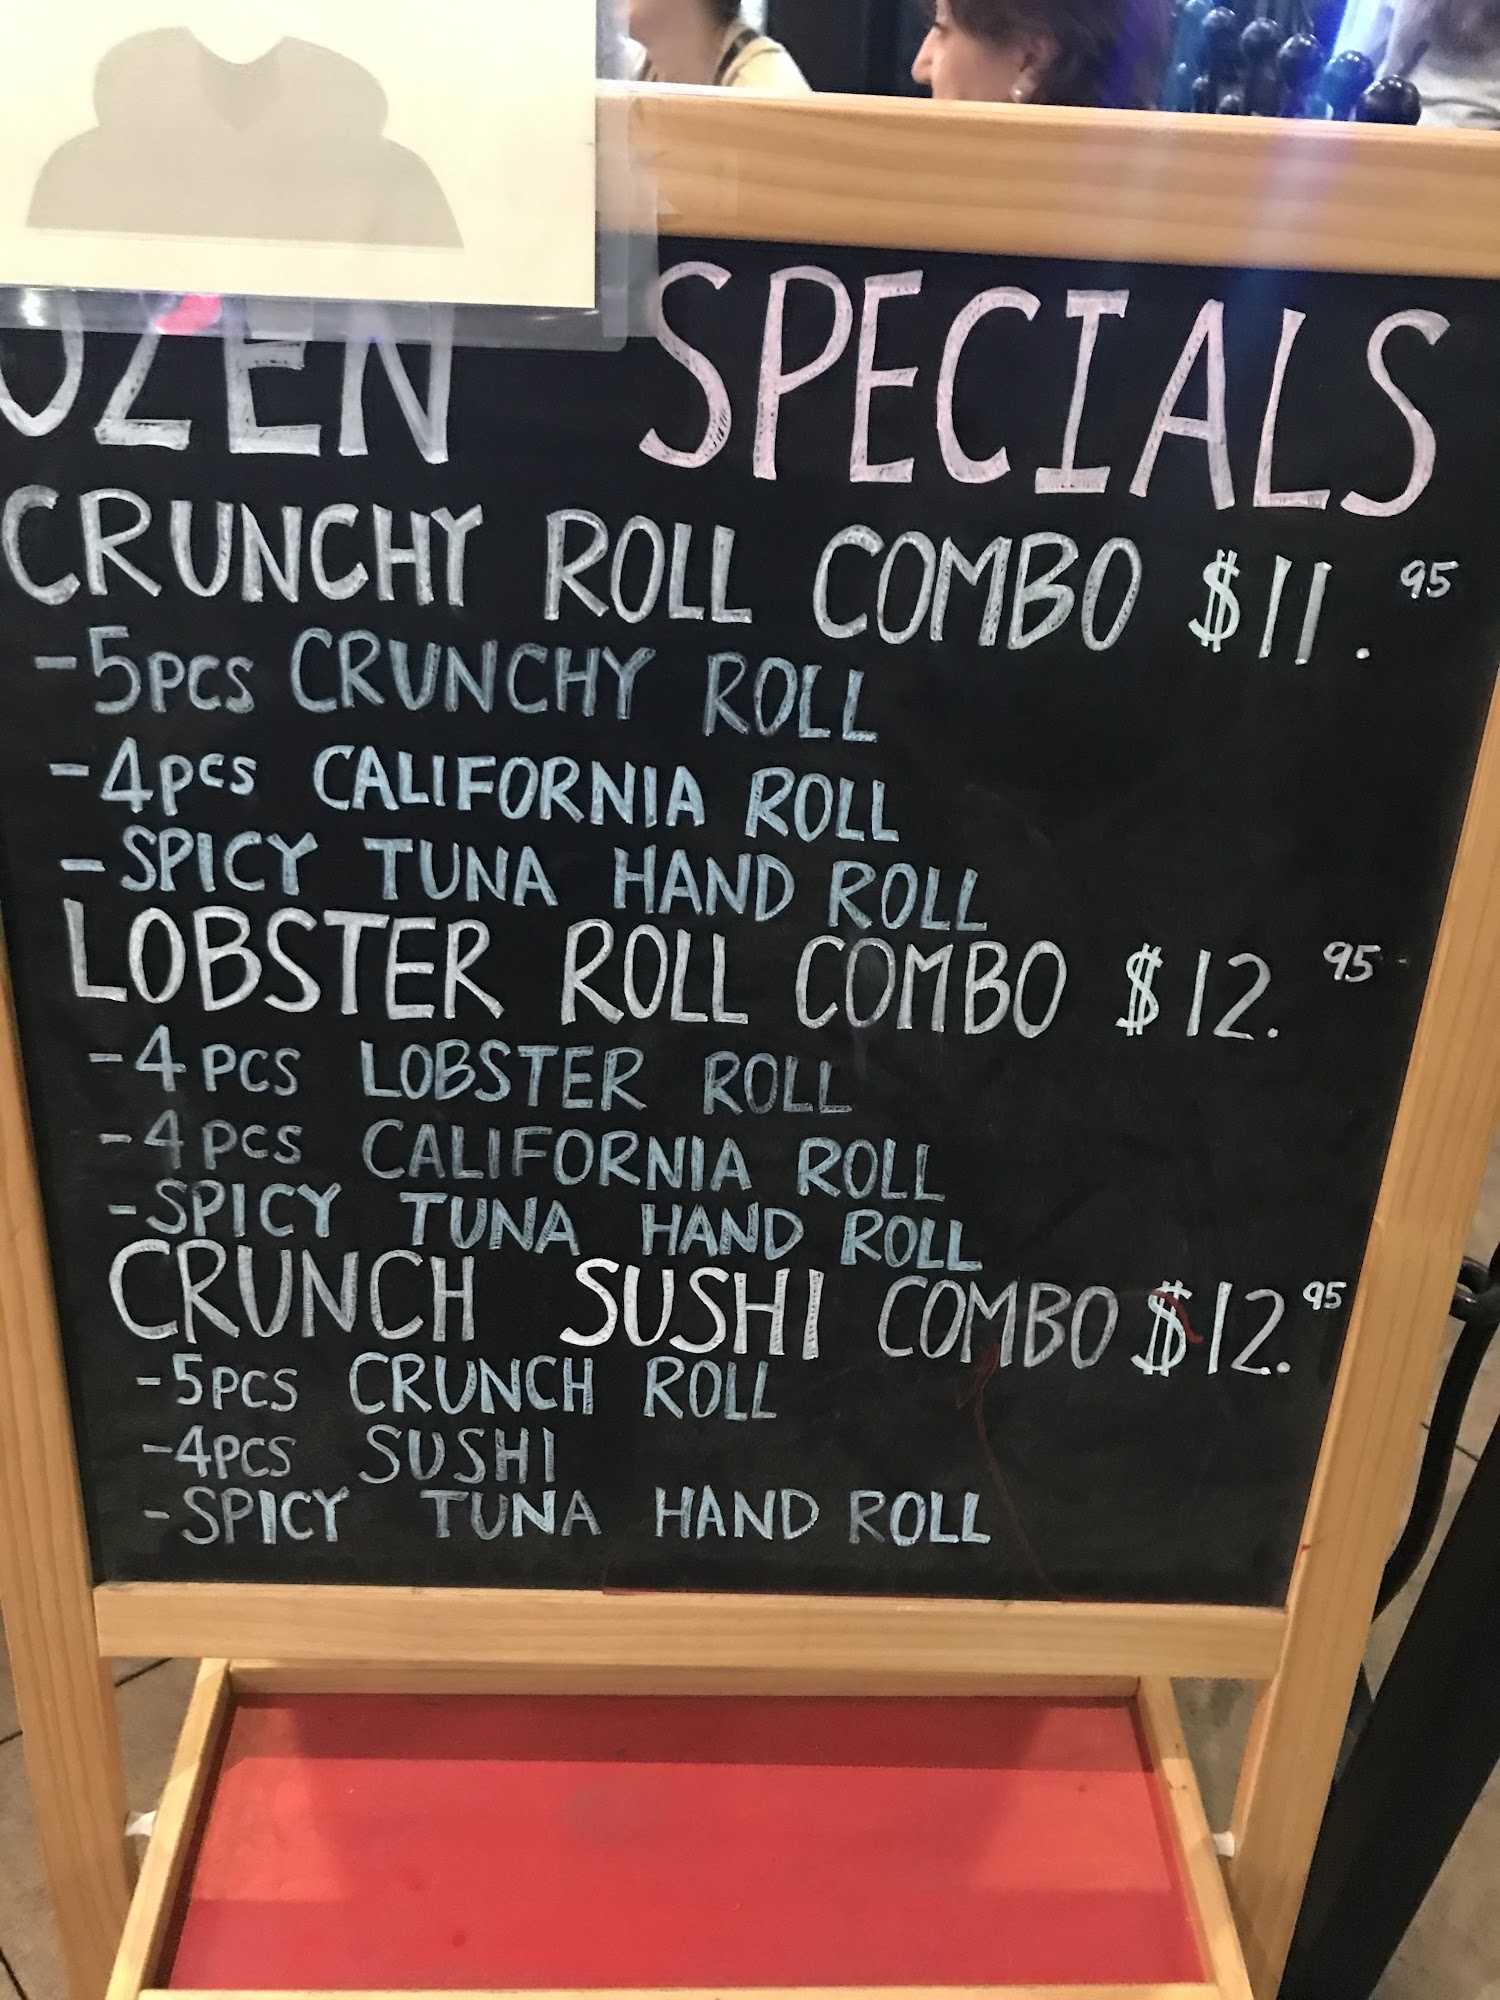 SPECIALS
CRUNCHY ROLL COMBO $11.95
-5PCS CRUNCHY ROLL
-4PCS CALIFORNIA ROLL
-SPICY TUNA HAND ROLL
LOBSTER ROLL COMBO $12.95
-4PCS LOBSTER ROLL
-4PCS CALIFORNIA ROLL
-SPICY TUNA HAND ROLL
CRUNCH SUSHI COMBO $12.95
-5PCS CRUNCH ROLL
-4PCS SUSHI
-SPICY TUNA HAND ROLL